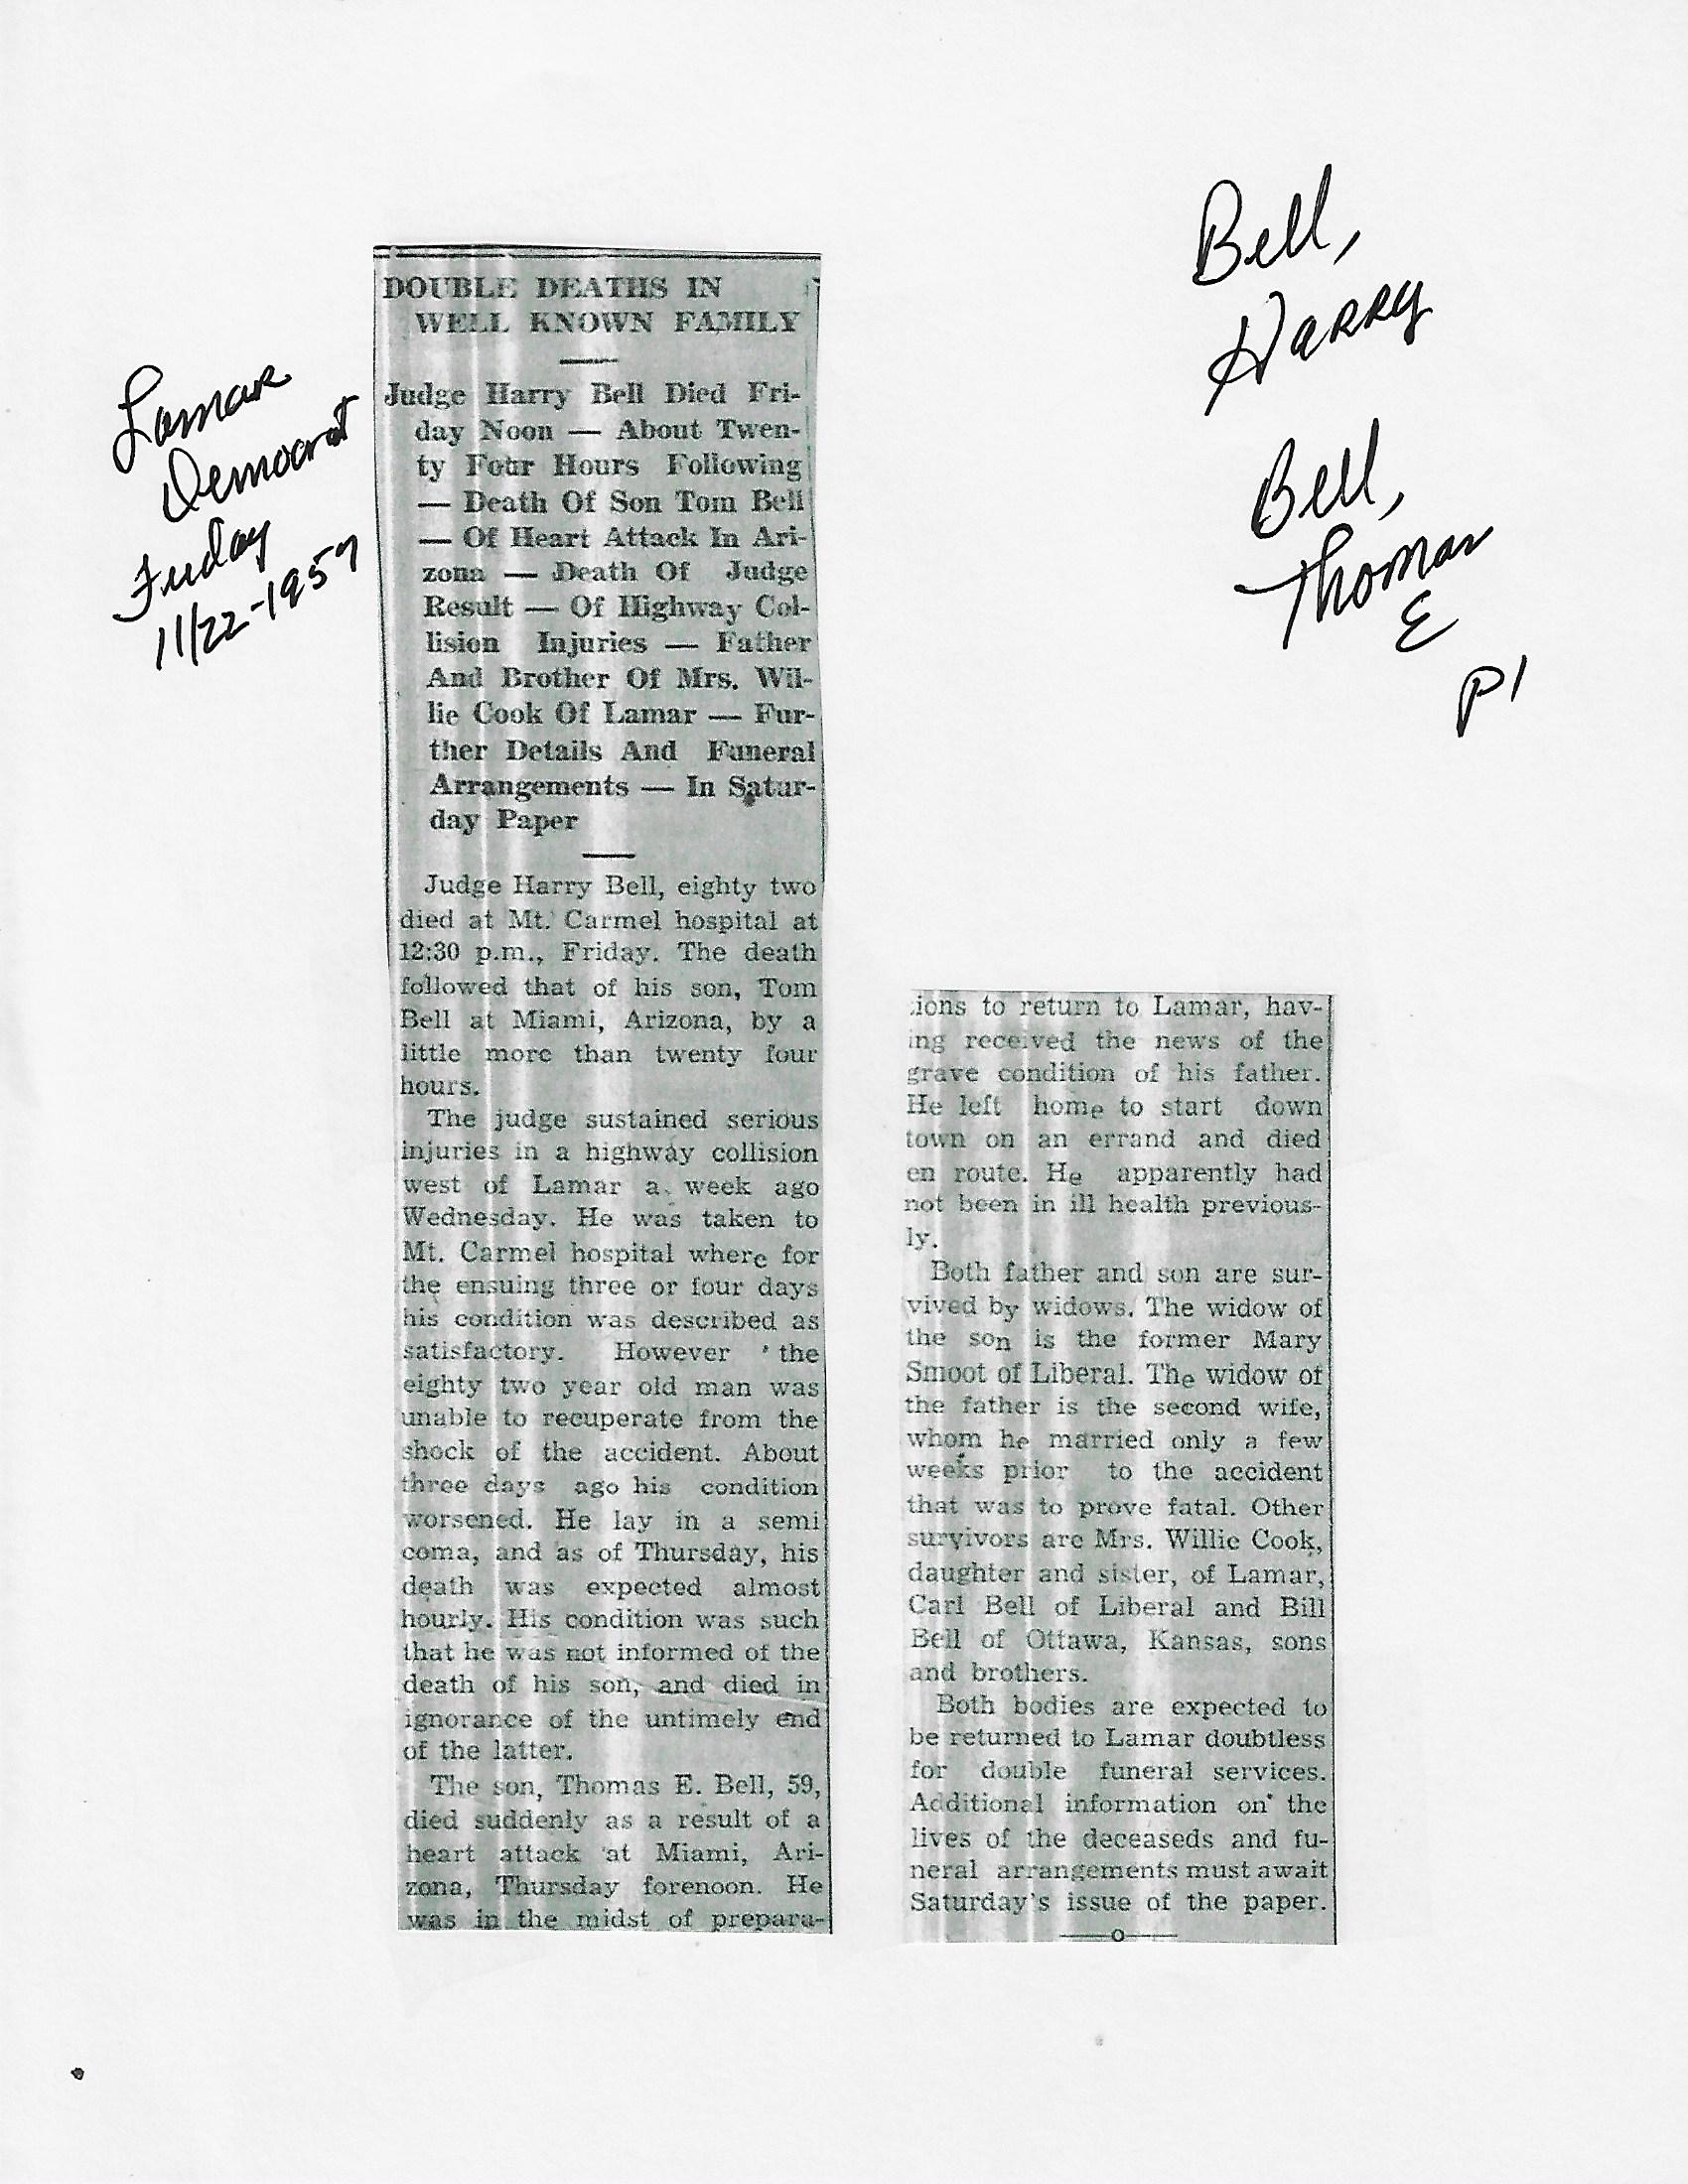 Lamar
Democrat
Friday
11/22-1957
Bell,
Harry
Bell,
Thomas
E
P1
DOUBLE DEATHS IN
WELL KNOWN FAMILY
Judge Harry Bell Died Fri-
day Noon — About Twen-
ty Four Hours Following
— Death Of Son Tom Bell
— Of Heart Attack In Ari-
zona — Death Of Judge
Result — Of Highway Col-
lision Injuries — Father
And Brother Of Mrs. Wil-
lie Cook Of Lamar — Fur-
ther Details And Funeral
Arrangements — In Satur-
day Paper
Judge Harry Bell, eighty two
died at Mt. Carmel hospital at
12:30 p.m., Friday. The death
followed that of his son, Tom
Bell at Miami, Arizona, by a
little more than twenty four
hours.
The judge sustained serious
injuries in a highway collision
west of Lamar a week ago
Wednesday. He was taken to
Mt. Carmel hospital where for
the ensuing three or four days
his condition was described as
satisfactory. However the
eighty two year old man was
unable to recuperate from the
shock of the accident. About
three days ago his condition
worsened. He lay in a semi
coma, and as of Thursday, his
death was expected almost
hourly. His condition was such
that he was not informed of the
death of his son, and died in
ignorance of the untimely end
of the latter.
The son, Thomas E. Bell, 59,
died suddenly as a result of a
heart attack at Miami, Ari-
zona, Thursday forenoon. He
was in the midst of prepara-
tions to return to Lamar, hav-
ing received the news of the
grave condition of his father.
He left home to start down
town on an errand and died
en route. He apparently had
not been in ill health previous-
ly.
Both father and son are sur-
vived by widows. The widow of
the son is the former Mary
Smoot of Liberal. The widow of
the father is the second wife,
whom he married only a few
weeks prior to the accident
that was to prove fatal. Other
survivors are Mrs. Willie Cook,
daughter and sister, of Lamar,
Carl Bell of Liberal and Bill
Bell of Ottawa, Kansas, sons
and brothers.
Both bodies are expected to
be returned to Lamar doubtless
for double funeral services.
Additional information on the
lives of the deceaseds and fu-
neral arrangements must await
Saturday's issue of the paper.
——o——